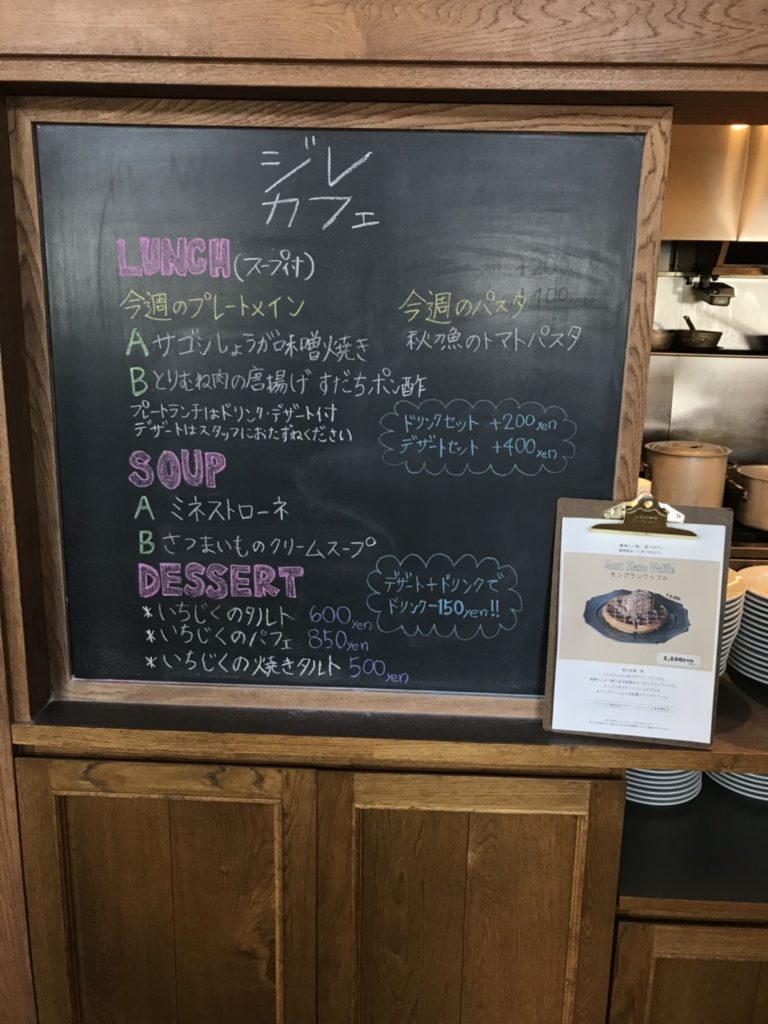 ジレ
カフェ
LUNCH(スープ付)
今週のプレートメイン
A サゴシしょうが味噌焼き
B とりむね肉の唐揚げ すだちポン酢
プレートランチはドリンク・デザート付
デザートはスタッフにおたずねください
今週のパスタ
秋の魚のトマトパスタ
ドリンクセット +200yen
デザートセット +400yen
SOUP
A ミネストローネ
B さつまいものクリームスープ
DESSERT
*いちじくのタルト 600yen
*いちじくのパフェ 850yen
*いちじくの焼きタルト 500yen
デザート+ドリンクで
ドリンクー150yen!!
Mont Blanc Waffle
モンブランワッフル
1,100yen